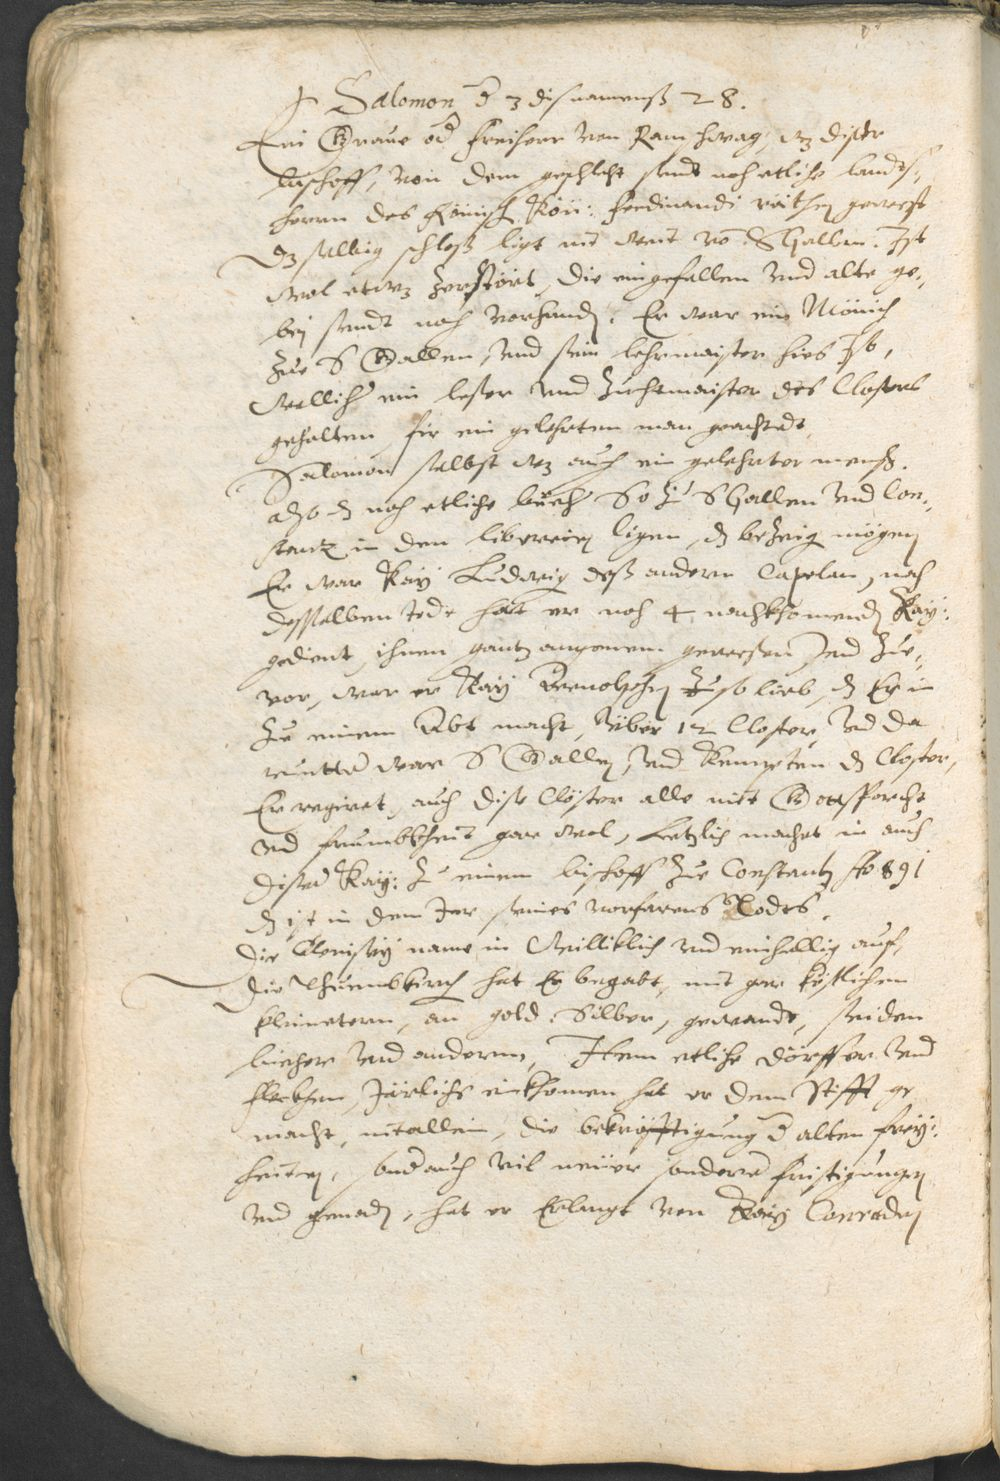 † Salomon d 3 dis namenß 28.
Ein Graue od freiherr von Ramschwag, wz diser
bischoff, von dem geschlecht seindt noch etliche landts
herrn des Römisch Kön: Ferdinandi räthen gewest
Dz selbig schloß ligt nit weit vō S Gallen. Ist
wol etwz zerstört, die eingefallen vnd alte ge-
bei seindt noch vorhanden. Er war ein Mönich
zue S Gallen, vnd sein lehrmaister hies Iso,
wellicher ein leser vnd Zuchtmaister des Closters
gehalten für ein gelehrten man geachtet,
Salomon selbst wz auch ein gelehrter mensch.
also dz noch etliche büech so zu S Gallen vnd Con-
stantz in den libereien ligen, dz bezeig mögen
Er war Kay Ludwig deß andern Capelan, nach
desselben tode hatt er noch 4 nachkhomenden Kay:
gedient, ihnen gantz angenem gewesen vnd zue-
vor, war er Kay Arnolphen so lieb, dz Er in
zue einem Abt macht, über 12 Closter, vnd da
runtter war S Gallen, vnd Kempten dz Closter,
Er regiret, auch dise Clöster alle mit Gottsforcht
vnd frumbkheit gar wol, Letzlich machet in auch
diser Kay: zu einem bischoff zue Constantz Ao 891
dz ist in dem Jar seines vorfarens Todes.
die Clerisey name in williklich vnd einhellig auf,
Die Thuembkirch hat Er begabt, mit gar köstlichen
kleinetern, an gold. Silber, gewande, seiden
büecher vnd anderm, Item etliche dörffer vnd
fleckhen, Järlichs einkhomen hat er dem Stifft ge
macht, nit allein, die bekräfftigung d alten frey:
heiten, sonder auch vil neüer sonderer freistigungen
vnd genaden, hat er Erlangt von Kay Conraden